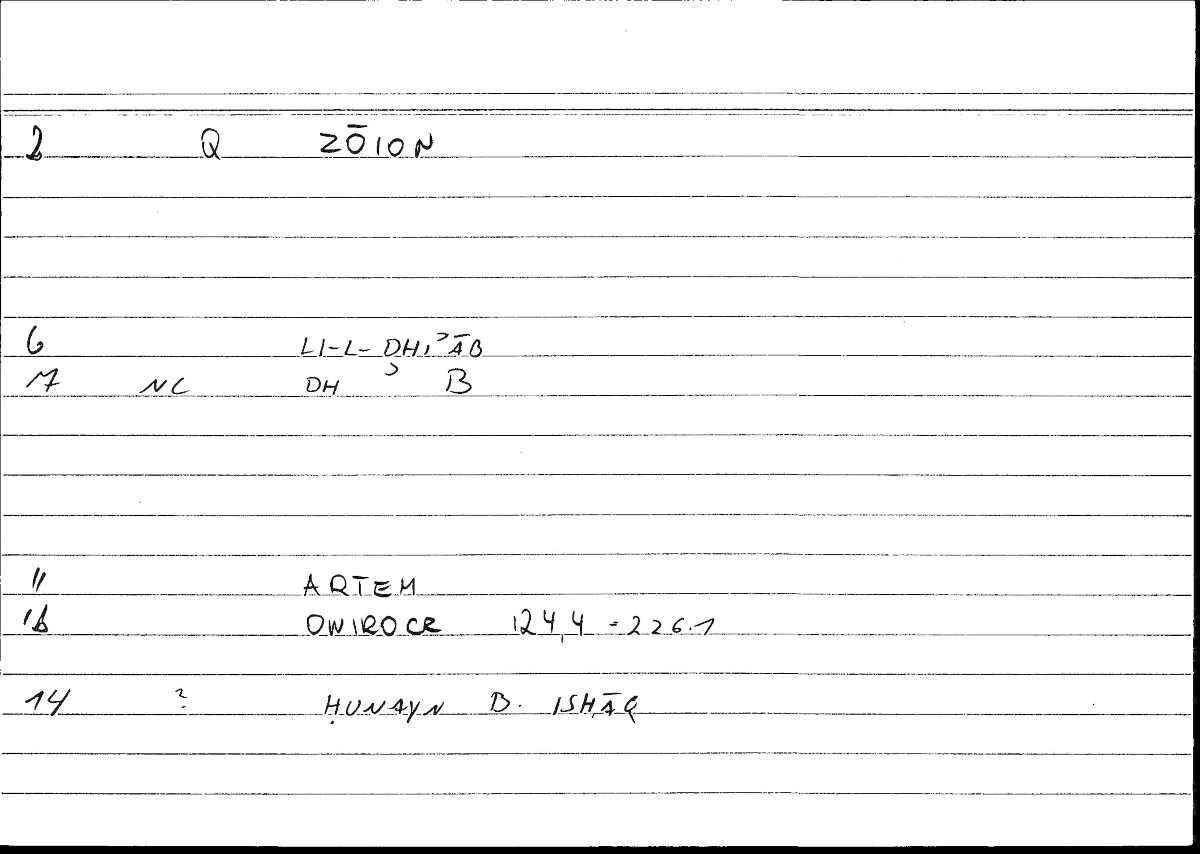 2 Q ZŌION
6 LI-L-DHIʾĀB
7 NC DH ʾ B
11 ARTEM
16 ONIROCR 124,4 = 226.1
14 ? ḤUNAYN B. ISḤĀQ